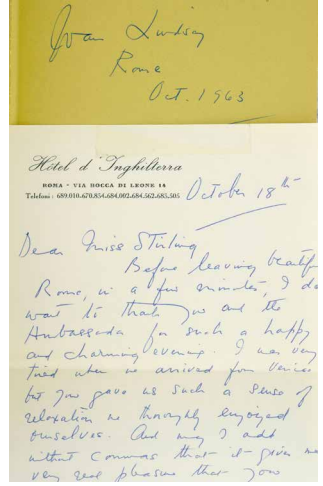 Joan Lindsay
Rome
Oct. 1963
Hôtel d'Inghilterra
ROMA - VIA BOCCA DI LEONE 14
Telefoni : 689.010.670.854.684.002.684.562.685.505
October 18th
Dear Miss Stirling
Before leaving beautif
Rome, in a few minutes, I do
want to thank you and the
Ambassada for such a happy
and charming evening. I was very
tired when we arrived from Venice
but you gave us such a sense of
relaxation we thoroughly enjoyed
ourselves. And may I add
without commas that it gives me
very real pleasure that you